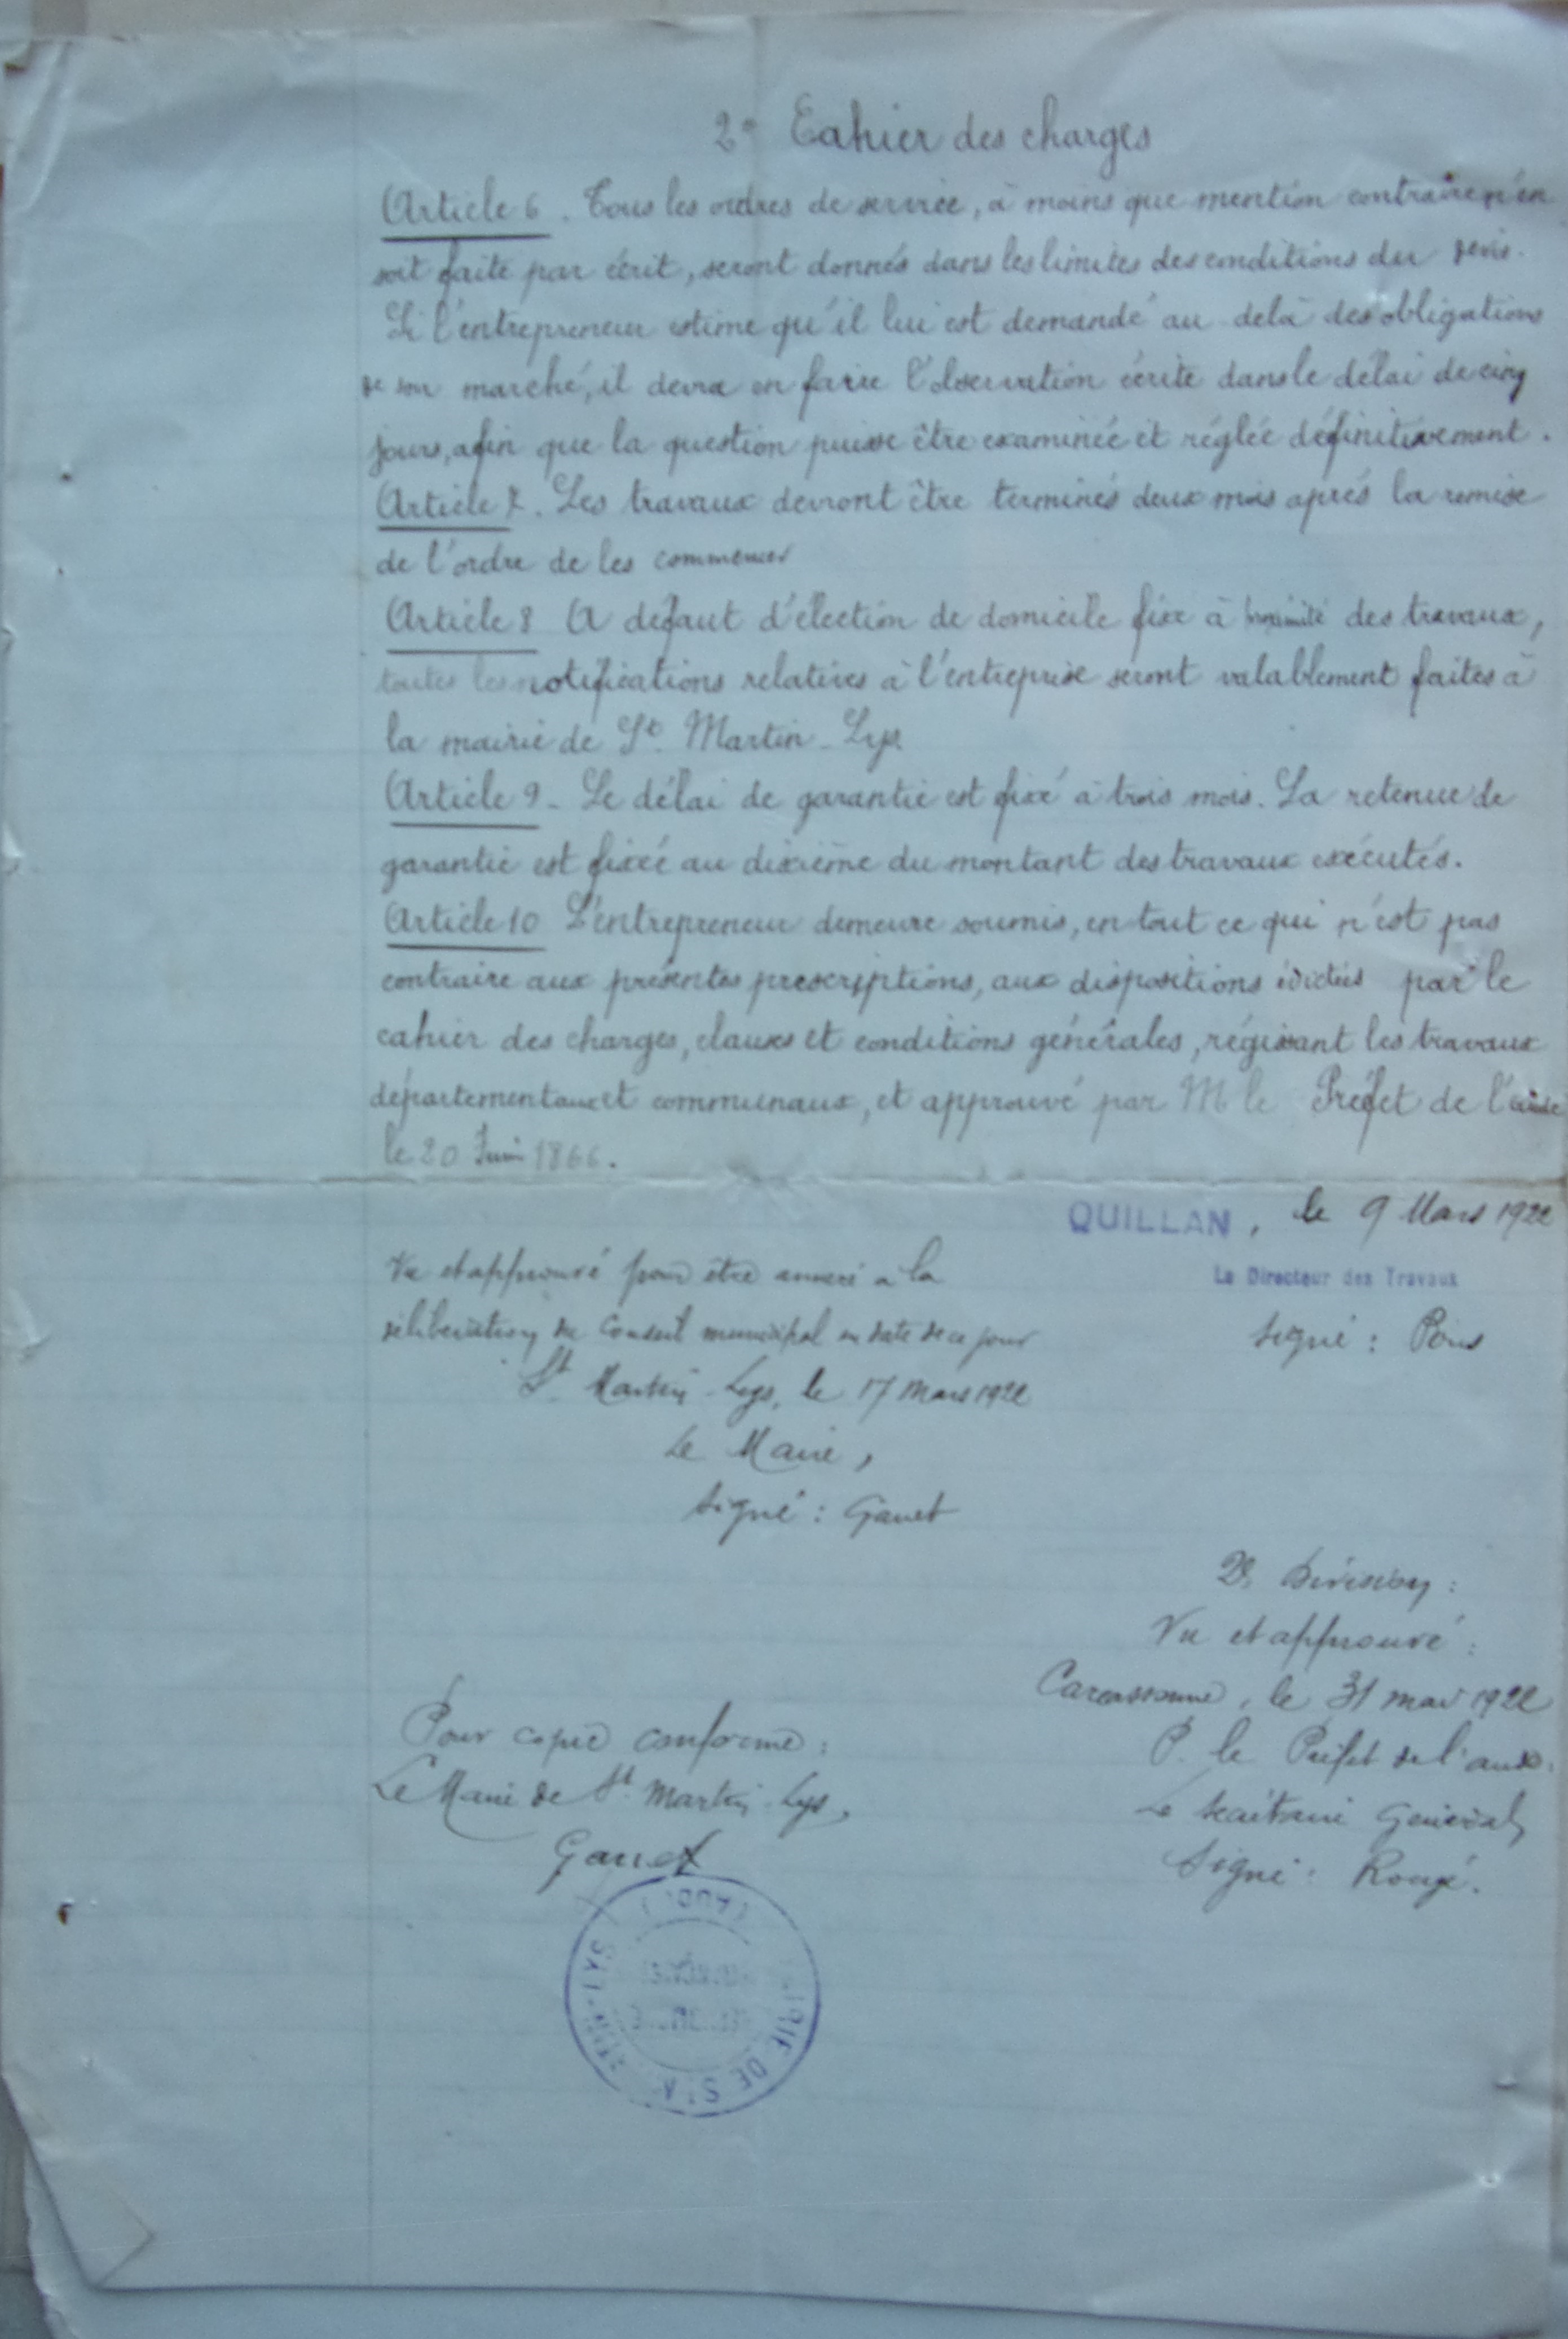 2° Cahier des charges
Article 6. Tous les ordres de service, à moins que mention contraire n'en
soit faite par écrit, seront donnés dans les limites des conditions du devis.
Si l'entrepreneur estime qu'il lui est demandé au-delà des obligations
de son marché, il devra en faire l'observation écrite dans le délai de cinq
jours, afin que la question puisse être examinée et réglée définitivement.
Article 7. Les travaux devront être terminés deux mois après la remise
de l'ordre de les commencer
Article 8 A défaut d'élection de domicile fixe à proximité des travaux,
toutes les notifications relatives à l'entreprise seront valablement faites à
la mairie de St. Martin-Lys.
Article 9 - Le délai de garantie est fixé à trois mois. La retenue de
garantie est fixée au dixième du montant des travaux exécutés.
Article 10 L'entrepreneur demeure soumis, en tout ce qui n'est pas
contraire aux présentes prescriptions, aux dispositions édictées par le
cahier des charges, clauses et conditions générales, régissant les travaux
départementaux et communaux, et approuvé par M le Préfet de l'Aude
le 20 Juin 1866.
QUILLAN, le 9 Mars 1922
Le Directeur des Travaux
Signé : Pons
Vu et approuvé pour être annexé à la
délibération du Conseil municipal en date de ce jour
St Martin-Lys, le 17 Mars 1922
Le Maire,
Signé : Ganet
2e Division :
Vu et approuvé :
Carcassonne, le 31 mai 1922
P. le Préfet de l'Aude :
Le Secrétaire Général,
Signé : Rougé.
Pour copie conforme :
Le Maire de St. Martin-Lys,
Ganet